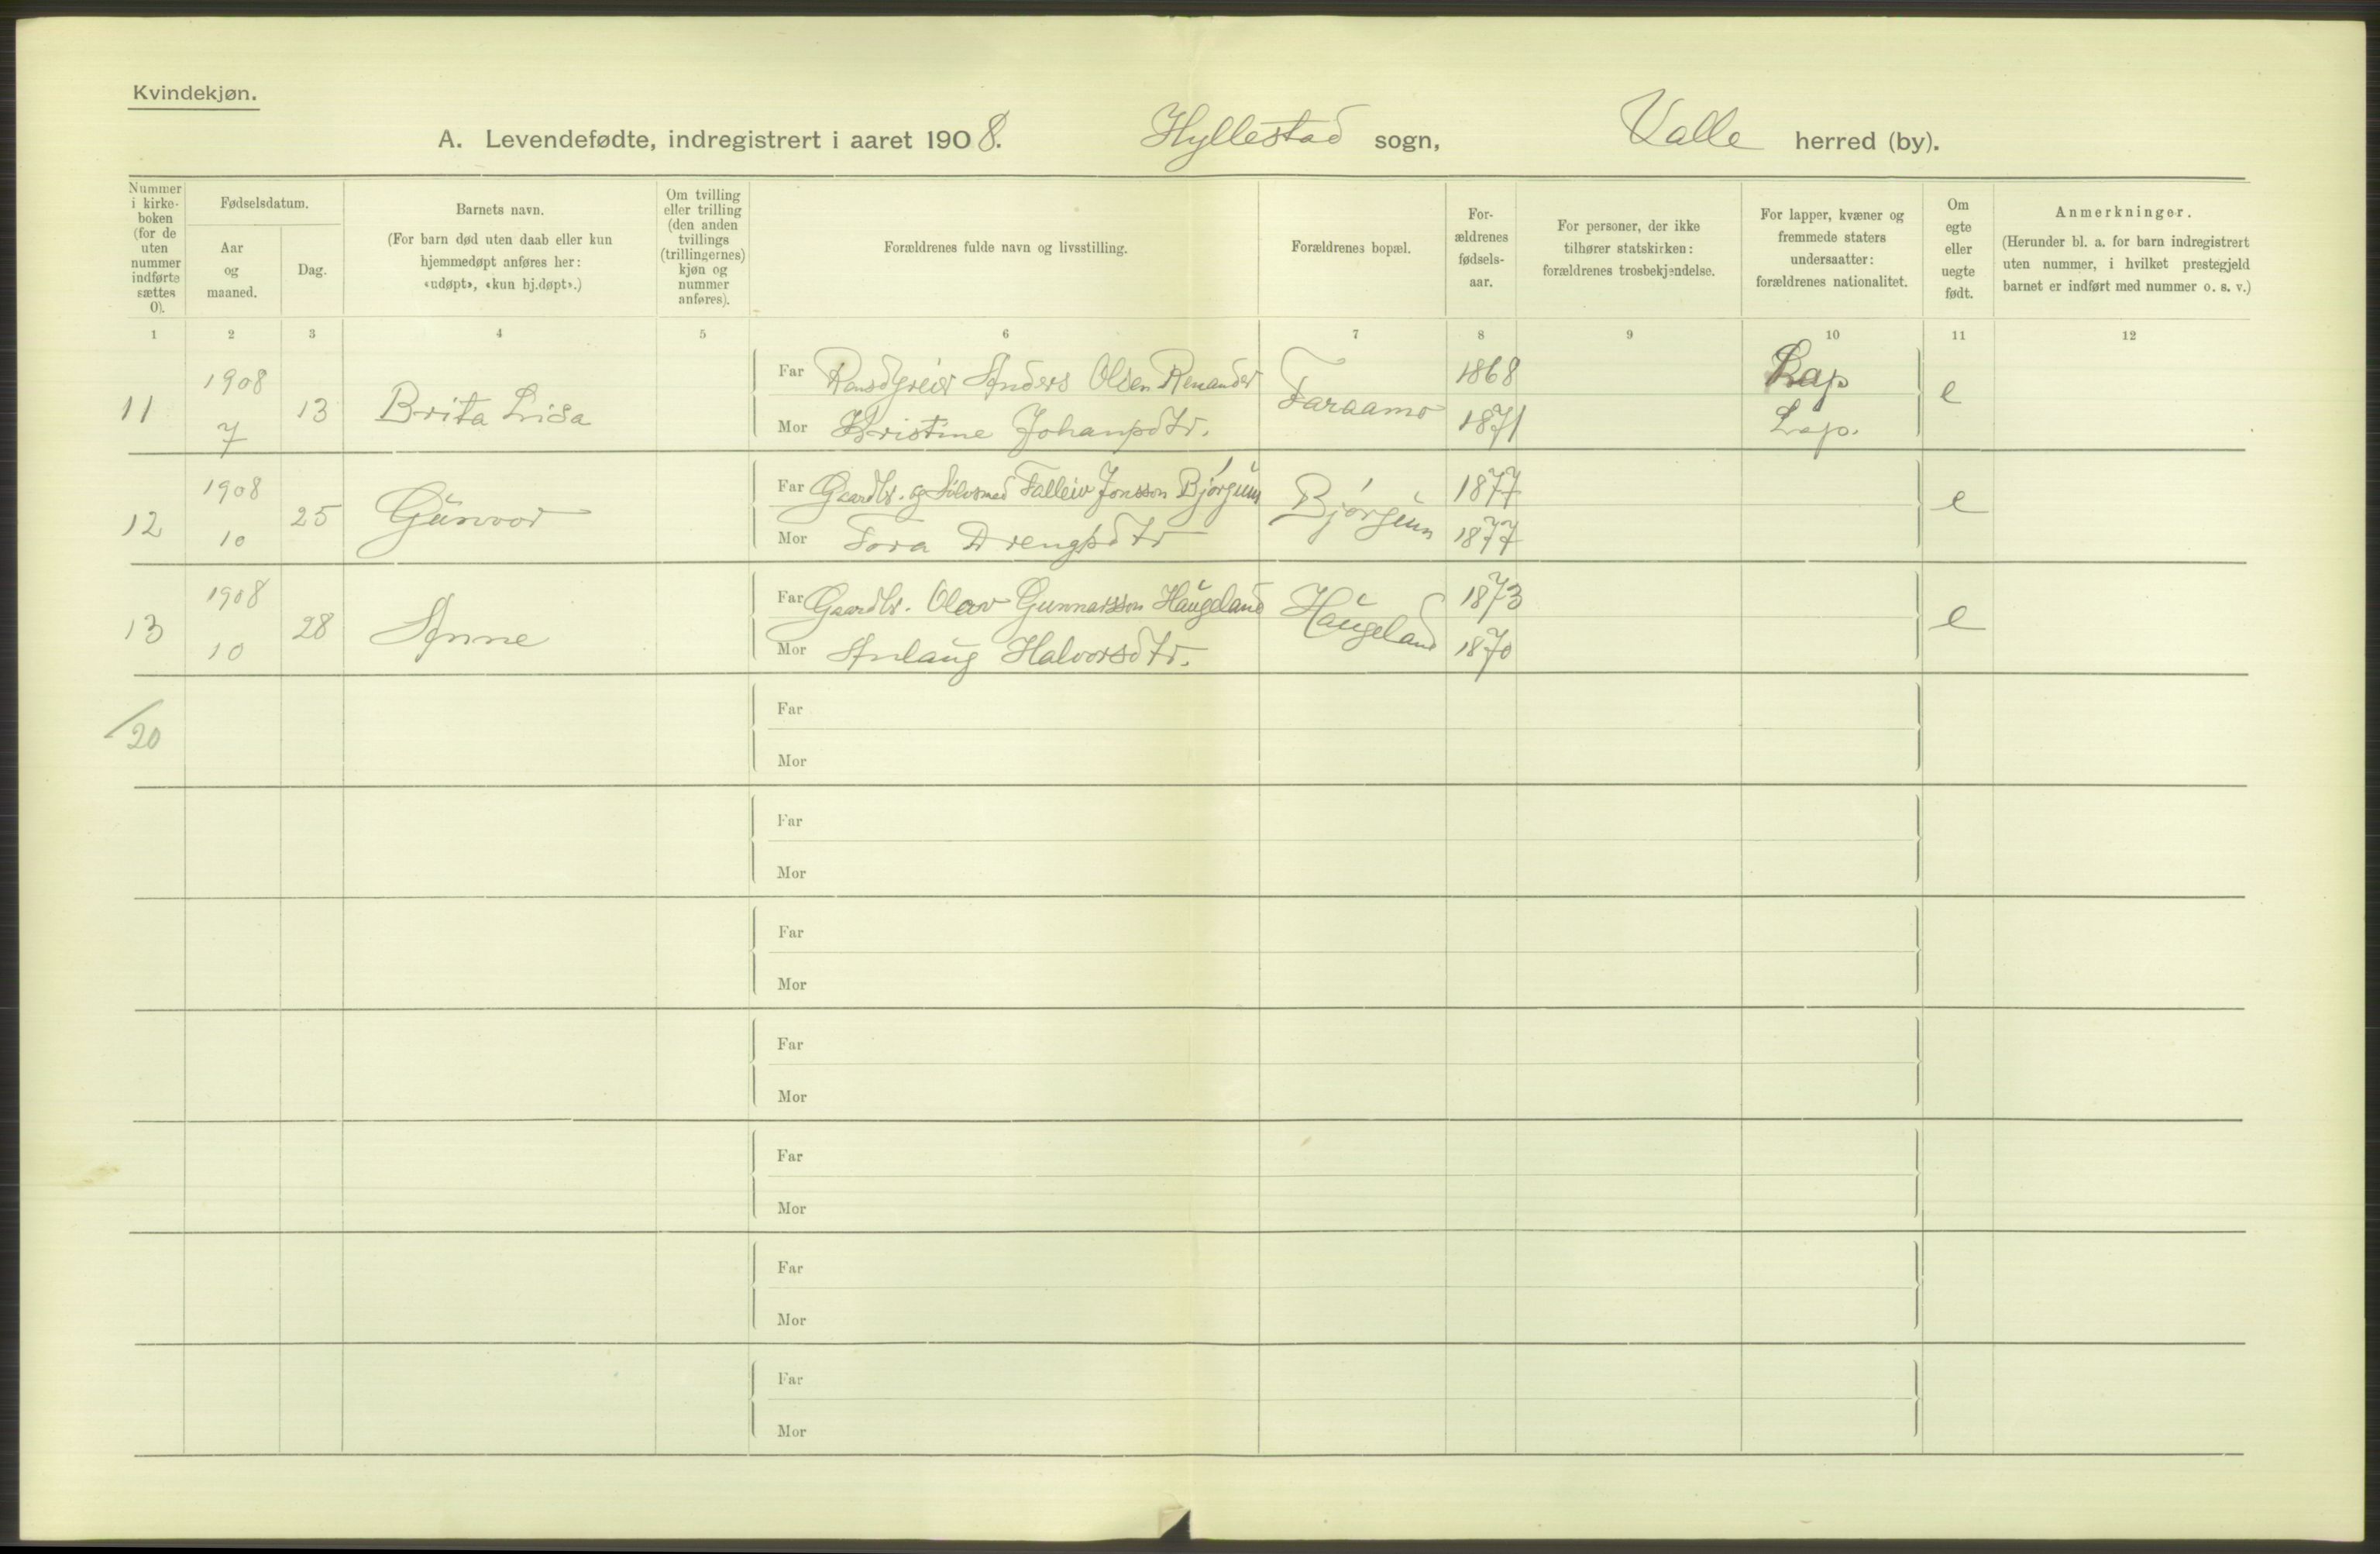 Kvindekjøn.
A. Levendefødte, indregistrert i aaret 1908. Hyllestad sogn, Valle herred (by).
Nummer i kirke- boken (for de uten nummer indførte sættes 0).
Fødselsdatum.
Aar og maaned.
Dag.
Barnets navn.
(For barn død uten daab eller kun hjemmedøpt anføres her: «udøpt», «kun hj.døpt».)
Om tvilling eller trilling (den anden tvillings (trillingernes) kjøn og nummer anføres).
Forældrenes fulde navn og livsstilling.
Forældrenes bopæl.
For- ældrenes fødsels- aar.
For personer, der ikke tilhører statskirken: forældrenes trosbekjendelse.
For lapper, kvæner og fremmede staters undersaatter: forældrenes nationalitet.
Om egte eller uegte født.
Anmerkninger.
(Herunder bl. a. for barn indregistrert uten nummer, i hvilket prestegjeld barnet er indført med nummer o. s. v.)
1 2 3 4 5 6 7 8 9 10 11 12
11 1908 7 13 Brita Lisa
Far Anders Olsen Renander Faraamo 1868 Lap e
Mor Kristine Johansdtr. 1871 Lap.
12 1908 10 25 Gunvor
Far Gaardbr. og Sølvsmed Talleiv Jonsson Bjørgum Bjørgum 1877 e
Mor Tora Drengsdtr 1877
13 1908 10 28 Anne
Far Gaardbr. Olav Gunnarsson Haugeland Haugeland 1873 e
Mor Anlaug Halvorsdtr. 1870
/20
Far
Mor
Far
Mor
Far
Mor
Far
Mor
Far
Mor
Far
Mor
Far
Mor